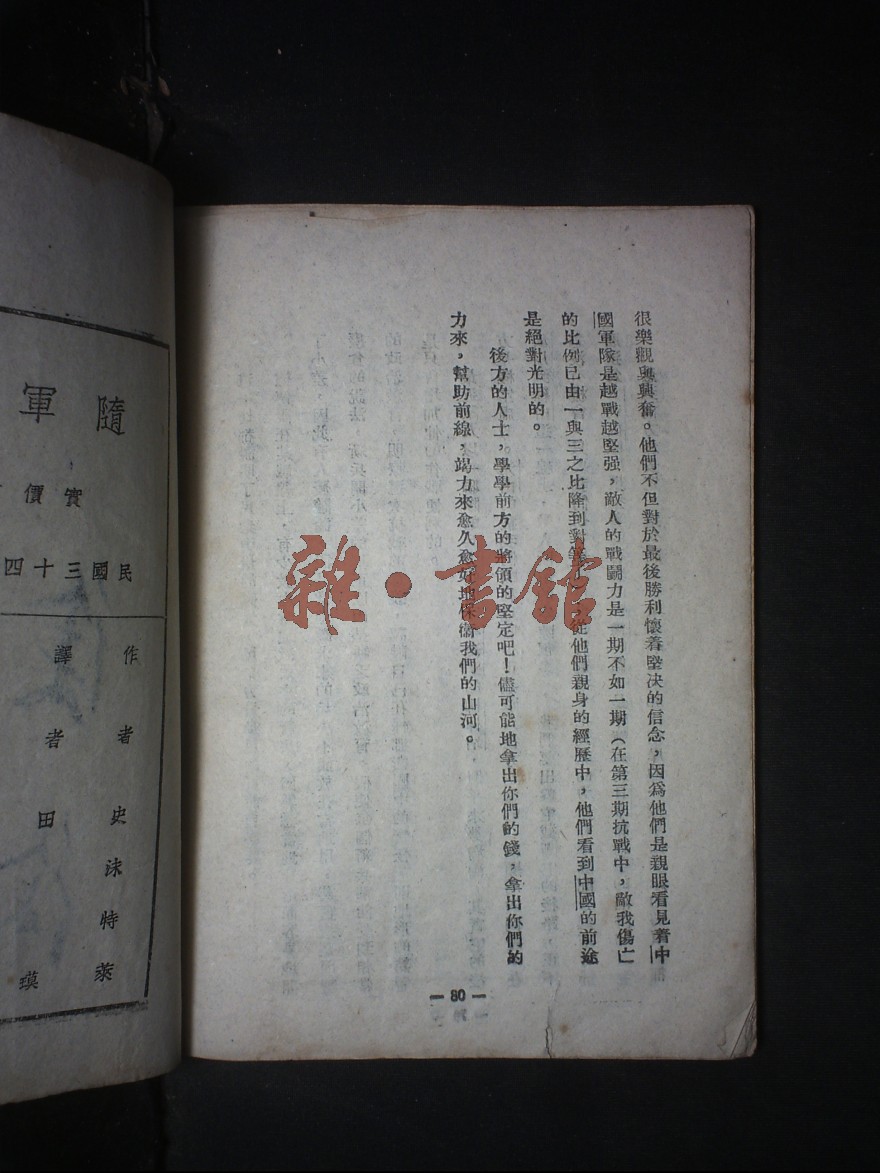 很樂觀與興奮。他們不但對於最後勝利懷着堅決的信念，因爲他們是親眼看見着中
國軍隊是越戰越堅强，敵人的戰鬪力是一期不如一期（在第三期抗戰中，敵我傷亡
的比例已由一與三之比隆到對等 從他們親身的經歷中，他們看到中國的前途
是絕對光明的。
後方的人士，學學前方的將領的堅定吧！儘可能地拿出你們的錢，拿出你們的
力來，幫助前線，竭力來愈久愈好地保衞我們的山河。
— 80 —
雜·書館
隨軍
實價
民國三十四
作者史沫特萊
譯者田 瑛